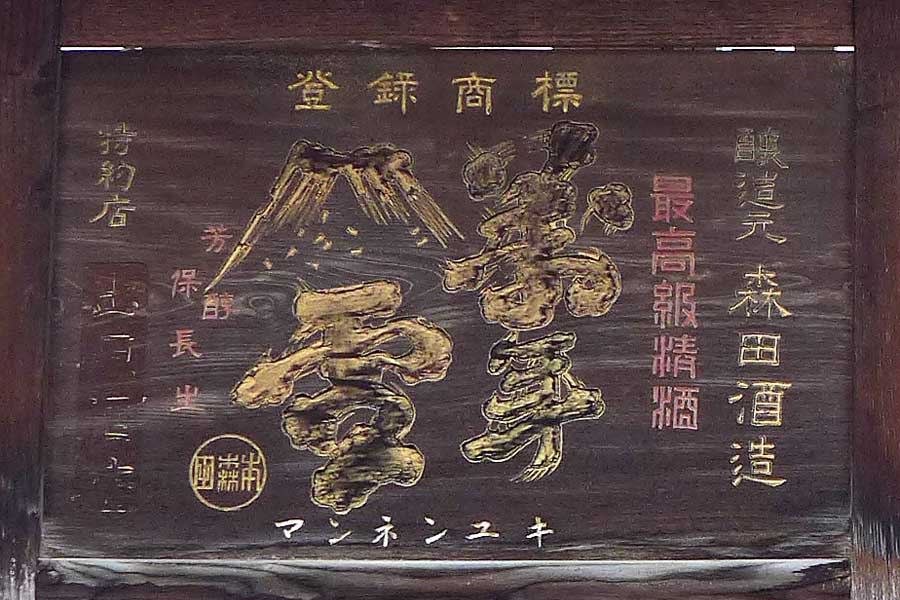 登録商標
醸造元 森田酒造
最高級清酒
萬年
雪
芳醇
保長生
本森田
特約店
マンネンユキ